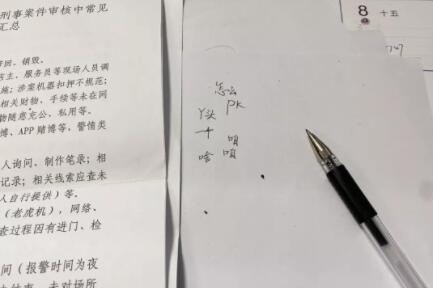 刑事案件审核中常见
汇总
召回、销毁。
店主、服务员等现场人员调
施；涉案机器扣押不规范；
相关财物、手续等未在网
物随意充公、私用等。
博、APP 赌博等，警情类
人询问、制作笔录；相
记录；相关线索应查未
人自行提供）等。
（老虎机），网络、
查过程因有进门、检
间（报警时间为夜
未对场所
怎么
PK
丫头
十 咱
啥 咱
8 十五